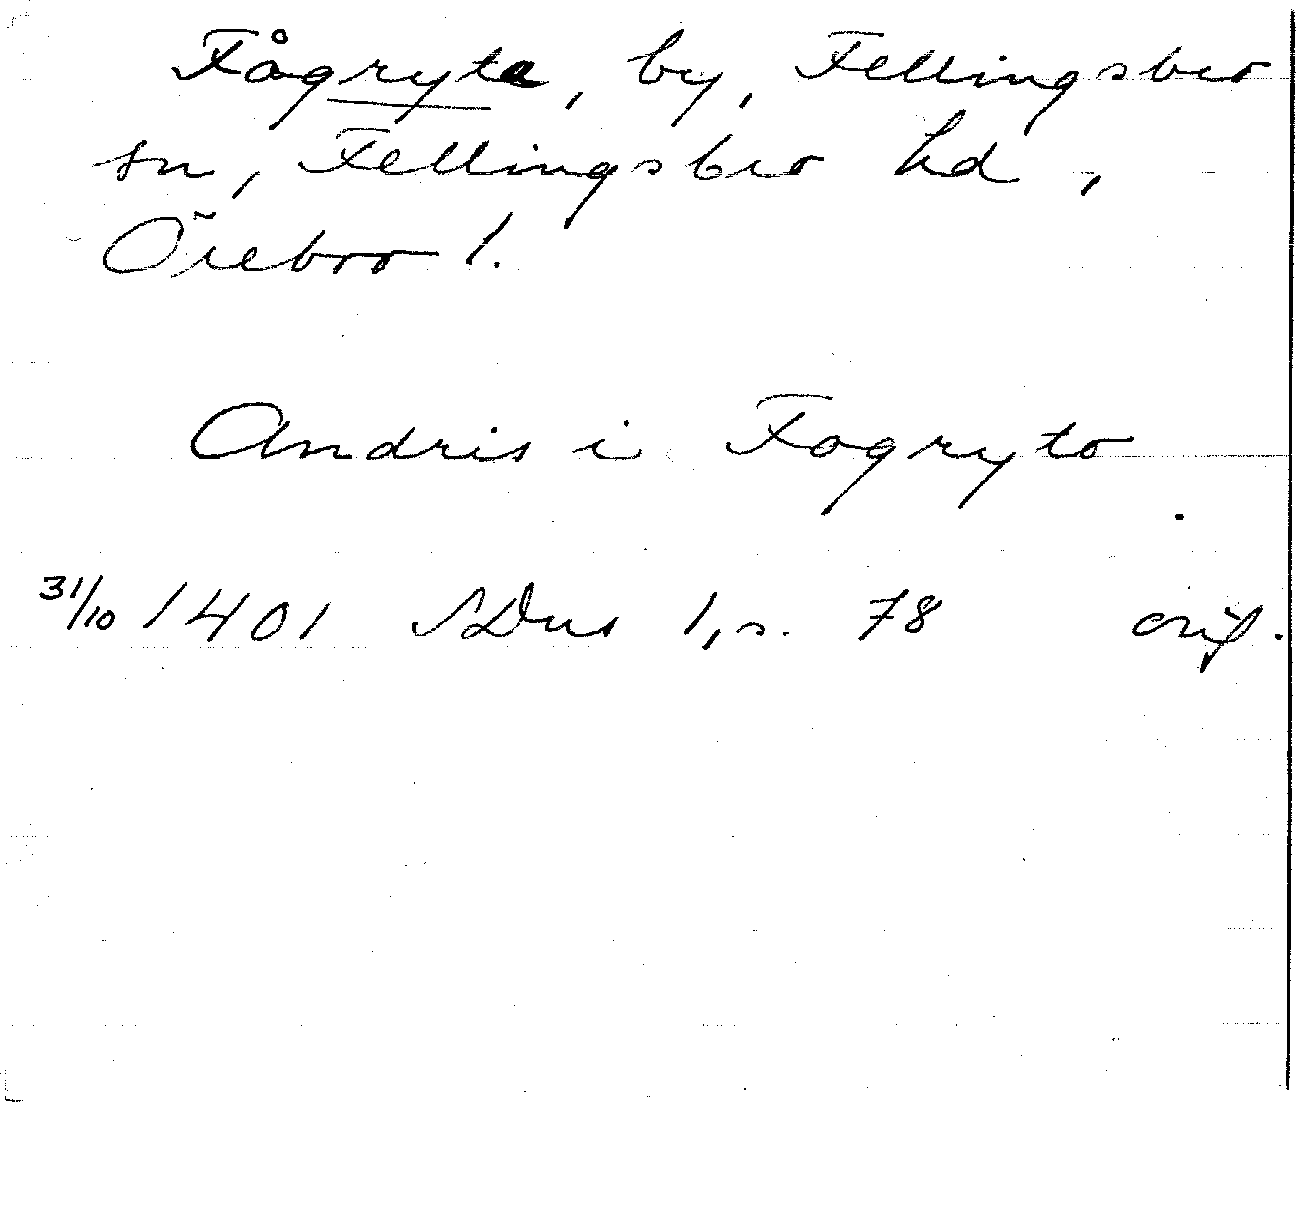 Fågryta, by, Fellingsbro
sn, Fellingsbro hd,
Örebro l.
Andris i Fogryto
31/10 1401 SDns 1, s. 78 orig.